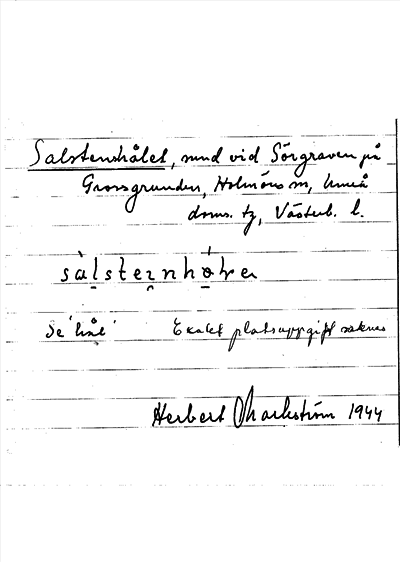 Salstenshålet, sund vid Sörgraven på
Grossgrunden, Holmöns sn, Umeå
doms. tg, Västerb. l.
Se 'hål' Exakt platsuppgift saknas
Herbert Markström 1944